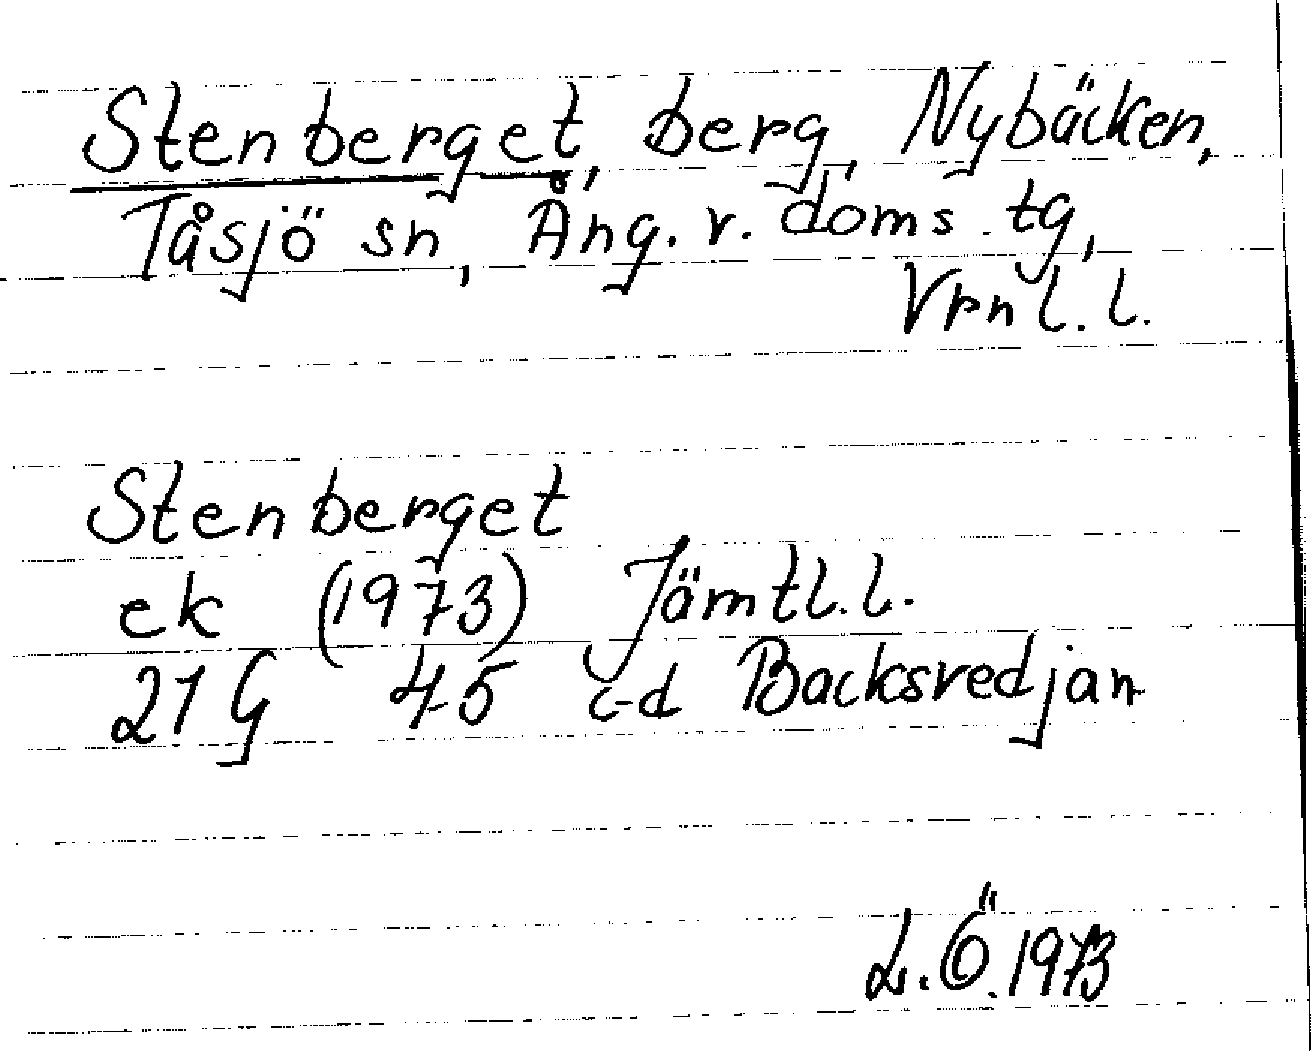 Stenberget, berg, Nybäcken,
Tåsjö sn, Ång. v. doms. tg,
Vrnl. l.
Stenberget
ek (1973) Jämtl. l.
21 G 45 c-d Backsvedjan
L.Ö. 1973